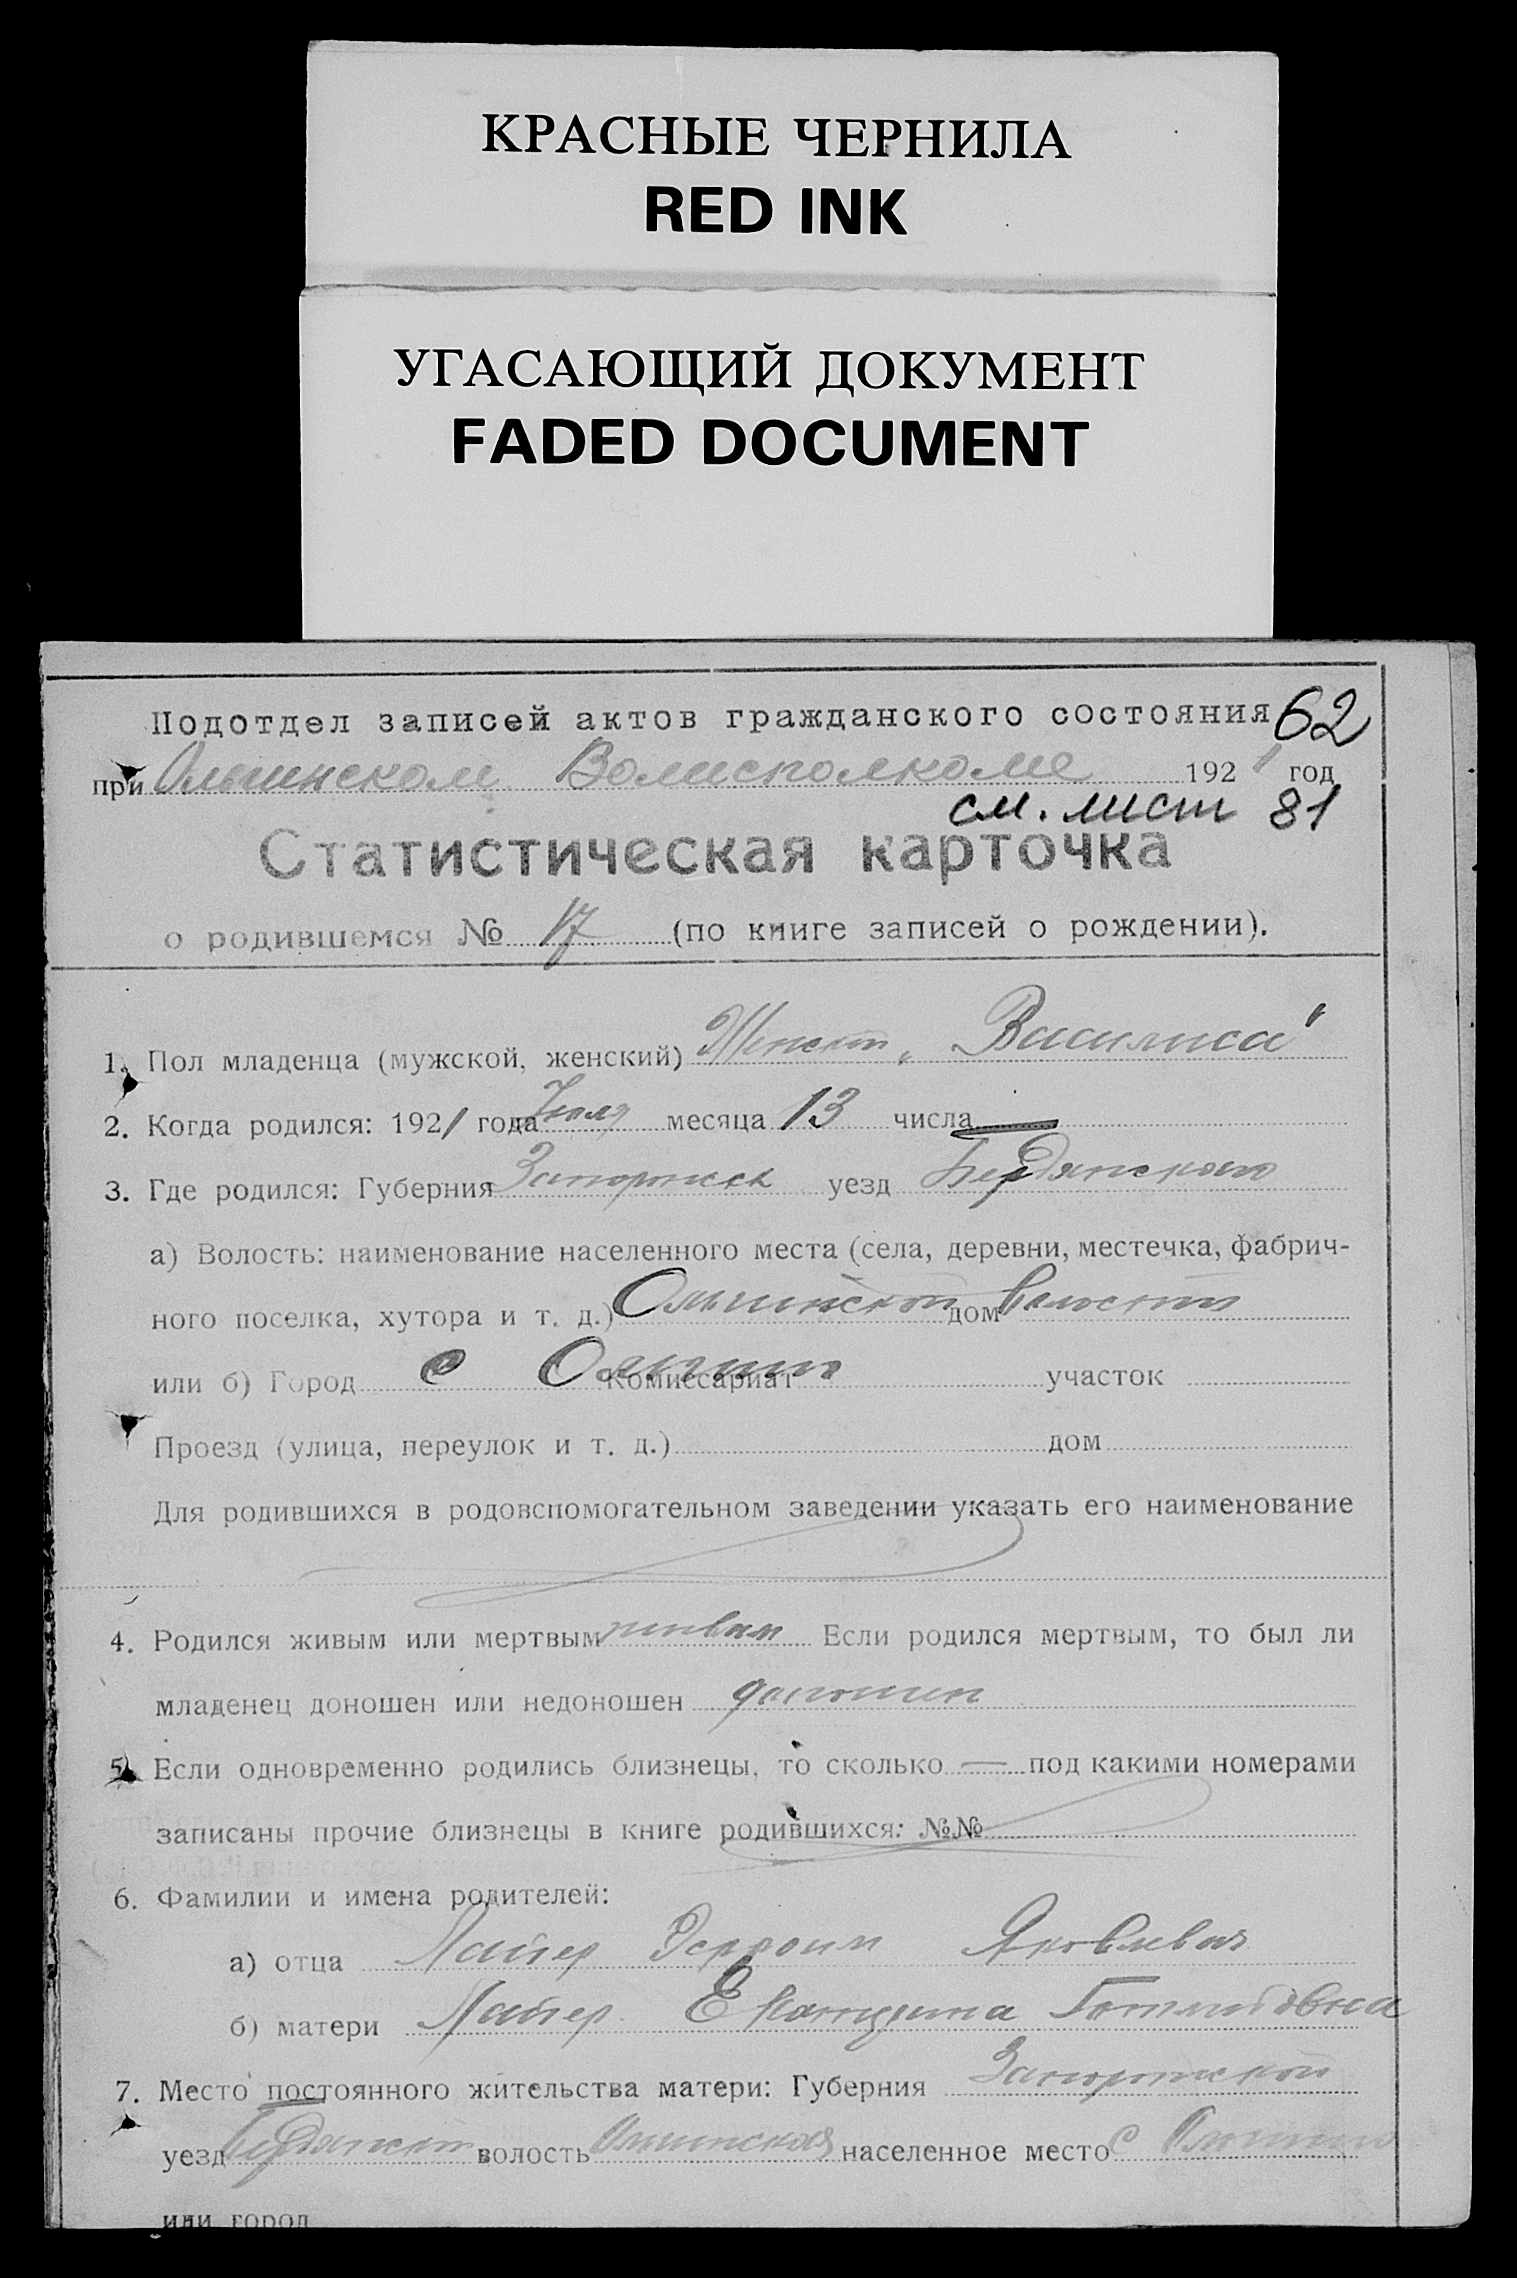 КРАСНЫЕ ЧЕРНИЛА
RED INK
УГАСАЮЩИЙ ДОКУМЕНТ
FADED DOCUMENT
Подотдел записей актов гражданского состояния 62
при Ольгинском Волисполкоме 1921 год
см. лист 81
Статистическая карточка
о родившемся № 17 (по книге записей о рождении).
1. Пол младенца (мужской, женский) Женск. „Василиса"
2. Когда родился: 1921 года Июля месяца 13 числа
3. Где родился: Губерния Запорожск уезд Бердянского
а) Волость: наименование населенного места (села, деревни, местечка, фабрич-
ного поселка, хутора и т. д.) Ольгинской дом волости
или б) Город с Ольгино Комиссариат участок
Проезд (улица, переулок и т. д.) дом
Для родившихся в родовспомогательном заведении указать его наименование
4. Родился живым или мертвым живым Если родился мертвым, то был ли
младенец доношен или недоношен доношен
5. Если одновременно родились близнецы, то сколько — под какими номерами
записаны прочие близнецы в книге родившихся: №№
6. Фамилии и имена родителей:
а) отца Майер Яковлевич
б) матери Майер Екатерина Готлибовна
7. Место постоянного жительства матери: Губерния Запорожской
уезд Бердянск волость Ольгинская населенное место с Ольгино
или город